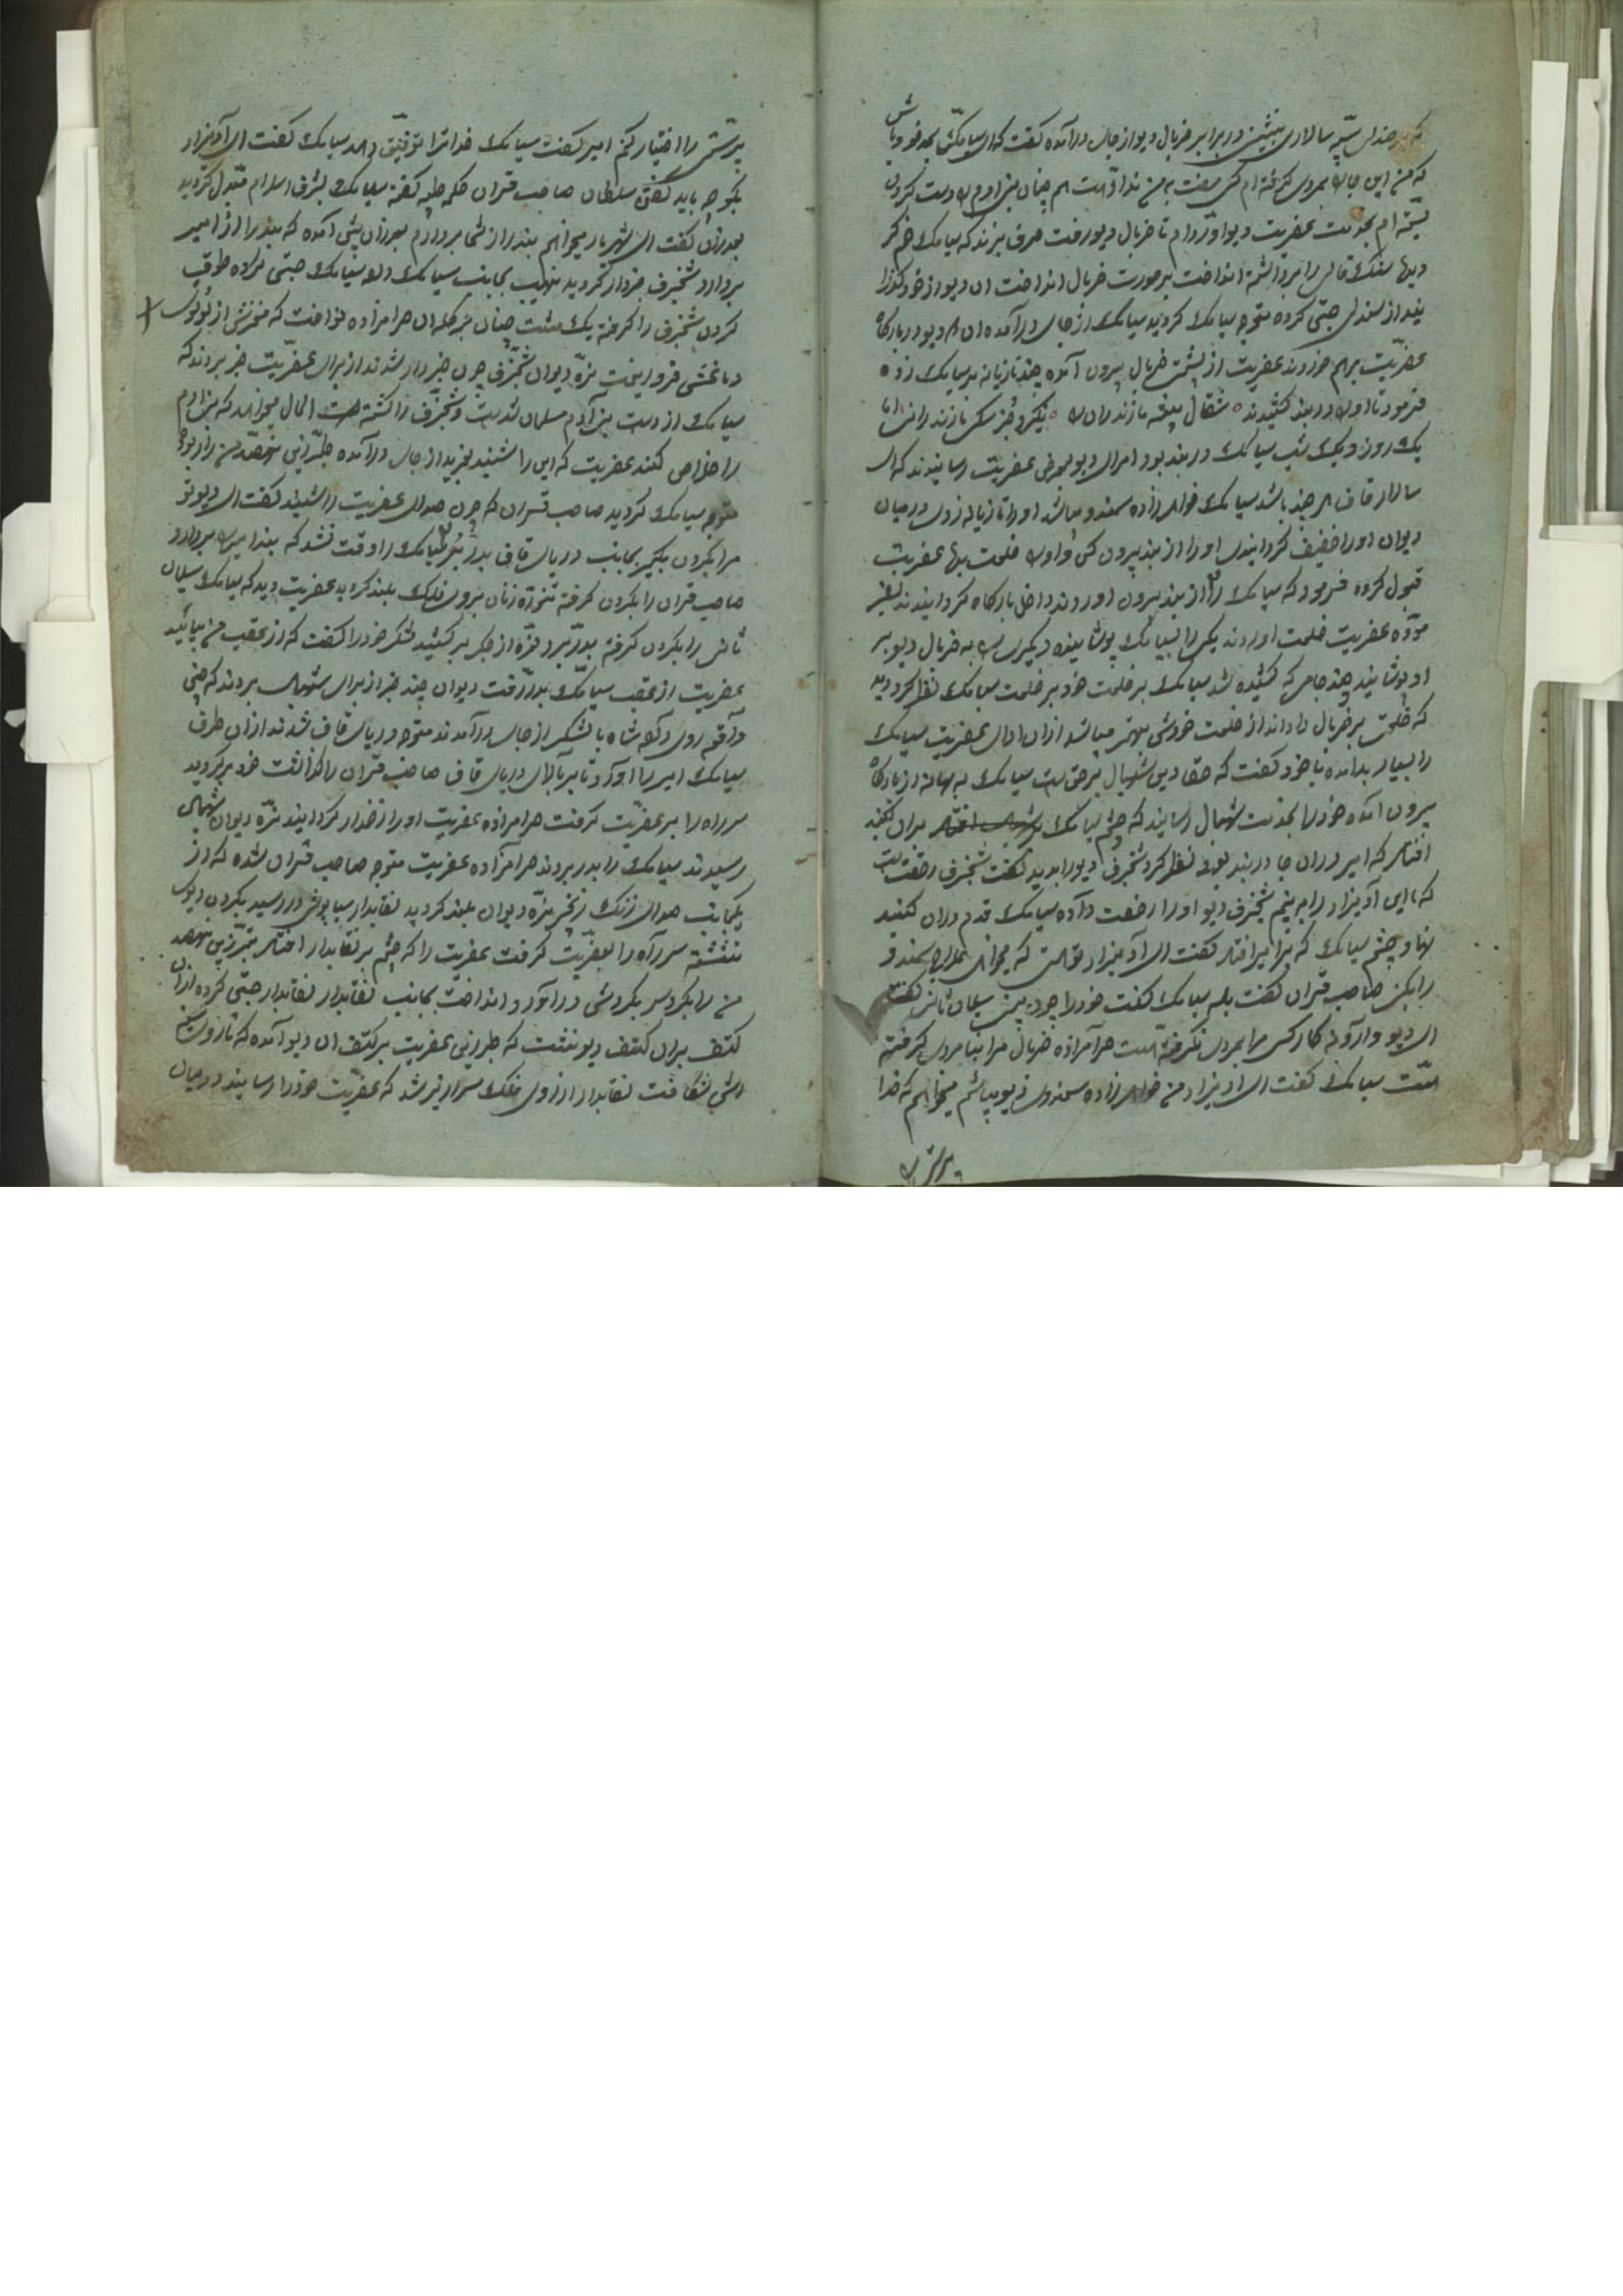 سپه سالاری بنشین در برابر خربال دیو از جای درآمده گفت که ای سیامک بخود باش
که من این جای بمردی گرفته ام کسی مفت به من نداده است
بسته ام بخدمت عفریت دیو آورده ام تا خربال دیو رفت حرف بزند که سیامک
را برداشته انداخت بر صورت خربال انداخت آن دیو از خود
صندلی جستی کرده متوجه سیامک گردید سیامک از جای درآمده آن دیو در بارگاه
عفریت برهم خوردند عفریت از پشت خربال بیرون آمده چند تازیانه بر سیامک زده
فرمود تا او را در بند کشیدند شغال بیشه مازندران را نگیرد جز سگ مازندرانی اما
یک روز و یک شب سیامک در بند بود امرای دیو بعرض عفریت رسانیدند که ای
سالار قاف هر چند باشد سیامک زاده سمندو میباشد او را تازیانه زدی در میان
دیوان او را خفیف گردانیدی او را از بند بیرون کن و او را خلعت بده عفریت
قبول کرده فرمود که سیامک را از بند بیرون آوردند داخل بارگاه گردانیدند
عفریت خلعت آوردند یکی را به سیامک پوشانیده دیگری را به خربال دیو
او پوشانید چند جامی که کشیده شد سیامک بر خلعت خود بر خلعت سیامک نظر گردید
که خلعتی بر خربال داده اند از خلعت خودش بهتر میباشد ازان ادای عفریت سیامک
را بسیار بد آمده با خود گفت که حقا دین شهپال بر حق است سیامک به بهانه از بارگاه
بیرون آمده خود را بخدمت شهپال رسانید که چشم سیامک بران
افتاد که امیر دران جا در بند بود نظر کرد شنجرف دیو را بدید گفت شنجرف رخصت است
که این آدمیزاد را به بینم شنجرف دیو او را رخصت داده سیامک قدم دران گنبد
نهاد چشم سیامک که بر امیر افتاد گفت ای آدمیزاد توئی که میخواهی علاج سمندو
را بکنی صاحب قران گفت بلی سیامک گفت خود را چون سلیمان ثانی گفت
ای دیو وارونه کار کسی مرا بمردی نگرفته است حرامزاده خربال مرا بنامردی گرفته
است سیامک گفت ای آدمیزاد من زاده سمندوی دیو میباشم میخواهم که خدا
پرستی را
پرستی را اختیار کنم امیر گفت سیامک خدا ترا توفیق دهد سیامک گفت ای آدمیزاد
بگو چه باید گفتن سلطان صاحب قران کلمه طیبه گفته سیامک بشرف اسلام مبدل گردید
بعد ازان گفت ای شهریار میخواهم بند را از شما بردارم بعد ازان پیش آمده که بند را از امیر
بردارد شنجرف خبردار گردید نهیب بجانب سیامک داد سیامک جستی کرده طرف
گردن شنجرف را گرفته یک مشت چنان بر کله آن حرامزاده نواخت که مغزش از
دماغش فرو ریخت نره دیوان شنجرف چون خبردار شدند از برای عفریت خبر بردند که
سیامک از دست بنی آدم مسلمان شدست و شنجرف را کشته است الحال میخواهد که بنی آدم
را خلاص کند عفریت که این را شنید بغرید از جای درآمده
متوجه سیامک گردید صاحب قران که چون صدای عفریت را شنید گفت ای دیو تو
مرا بگردن بگیر بجانب دریای قاف بدر سیامک را وقت نشد که بند امیر بردارد
صاحب قران را بگردن گرفته تنوره زنان بروی فلک بلند گردید عفریت دید که سیامک سلیمان
ثانی را بگردن گرفته بدر برد نعره از جگر برکشید لشکر خود را گفت که از عقب من بیائید
عفریت از عقب سیامک بدر رفت دیوان چند خبر از برای شهپال بردند که چنین
واقعه روی داد شاه با لشکر از جای درآمدند متوجه دریای قاف شدند ازان طرف
سیامک امیر را آورد تا بر بالای دریای قاف صاحب قران را گذاشت خود برگردید
سر راه را بر عفریت گرفت حرامزاده عفریت او را زخمدار گردانید نره دیوان شهپال
رسیدند سیامک را بدر بردند حرامزاده عفریت متوجه صاحب قران شده که از
یکجانب صدای زنگ زنجیر نره دیوان بلند گردید نقابدار سیاپوش در رسید بگردن دیوی
نشسته سر راه را بعفریت گرفت عفریت را که چشم بر نقابدار افتاد
من را بگردش درآورد و انداخت بجانب نقابدار نقابدار جستی کرده ازان
کتف بران کتف دیو نشست که عفریت بر کتف آن دیو آمده که تا روی
اش شکافت نقابدار از روی فلک سرازیر شد که عفریت خود را رسانید در میان